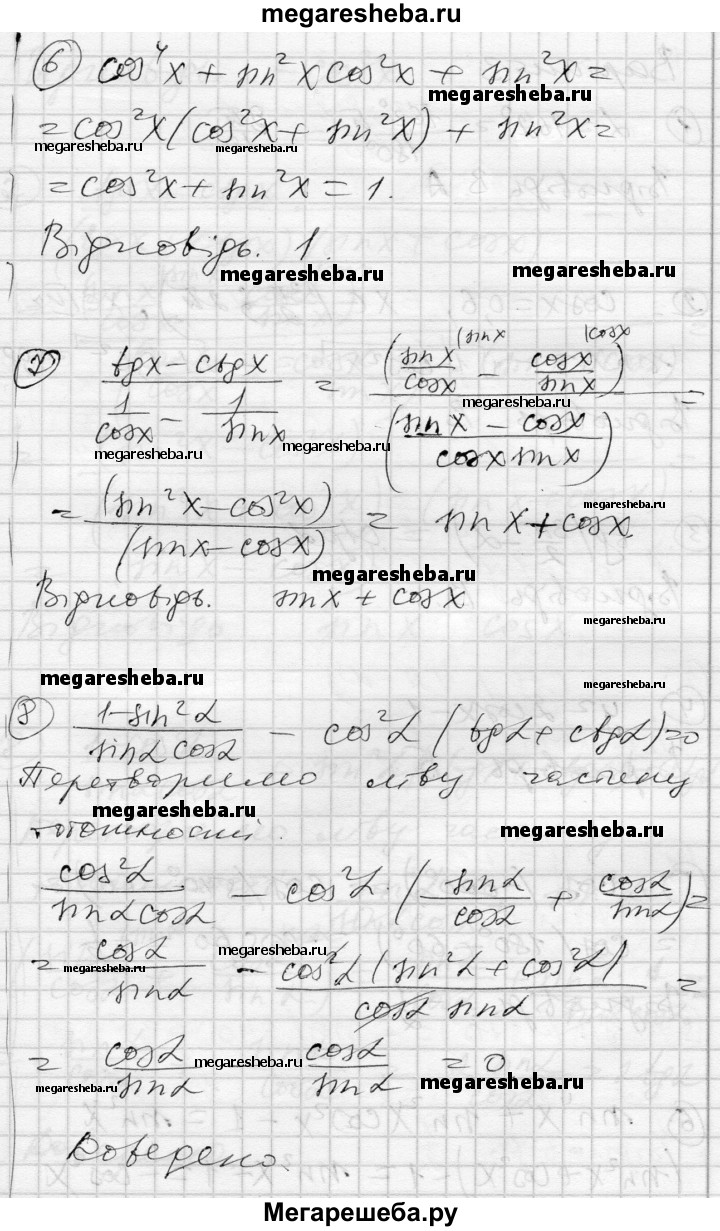 megaresheba.ru
⑥ cos⁴x + sin²x cos²x + sin²x =
megaresheba.ru
= cos²x(cos²x + sin²x) + sin²x =
megaresheba.ru megaresheba.ru
= cos²x + sin²x = 1.
Відповідь. 1.
megaresheba.ru megaresheba.ru
⑦ (tgx − ctgx)/(1/cosx − 1/sinx) = (sinx/cosx |sinx − cosx/sinx |cosx)/((sinx − cosx)/(cosx sinx)) =
megaresheba.ru
megaresheba.ru megaresheba.ru
= (sin²x − cos²x)/(sinx − cosx) = sinx + cosx.
megaresheba.ru
megaresheba.ru
Відповідь. sinx + cosx
megaresheba.ru
megaresheba.ru megaresheba.ru
⑧ (1−sin²α)/(sinα cosα) − cos²α (tgα + ctgα)=0
Перетворимо ліву частину
megaresheba.ru megaresheba.ru
тотожності.
cos²α/(sinα cosα) − cos²α · (sinα/cosα + cosα/sinα) =
megaresheba.ru megaresheba.ru
= cosα/sinα − cos²α (sin²α + cos²α)/(cosα sinα) =
= cosα/sinα − cosα/sinα = 0.
megaresheba.ru
megaresheba.ru megaresheba.ru
Доведено.
Мегарешеба.ру